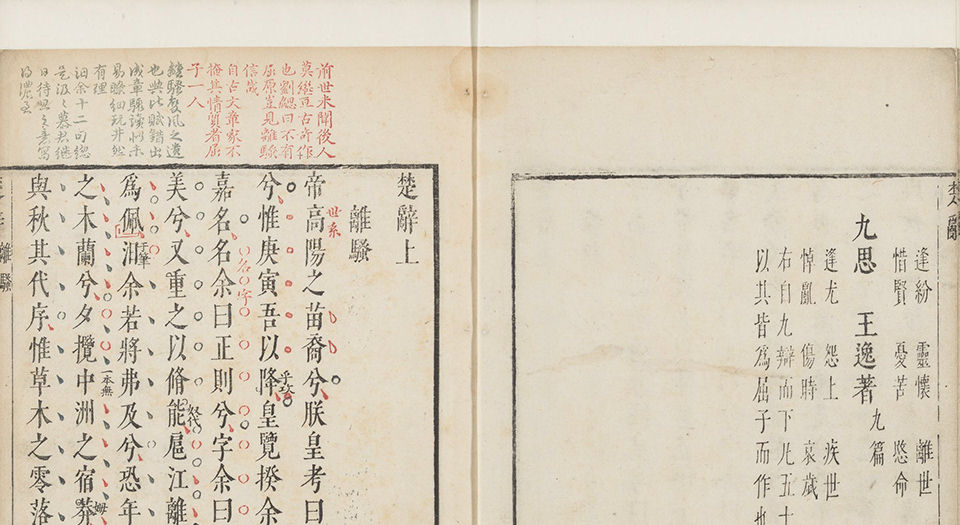 楚辭
逢紛 靈懷 離世
惜賢 憂苦 愍命
九思 王逸著 九篇
逢尤 怨上 疾世
悼亂 傷時 哀歲
右自九辯而下凡五十
以其皆爲屈子而作也
前世未聞後人
莫繼亘古奇作
也劉勰曰不有
屈原豈見離騷
信哉
自古文章家不
掩其情質者屈
子一人
騷變風之遺
也典比賦錯出
成章驟讀似未
易瞭細玩井然
有理
汨余十二句總
是汲汲慕君
日待之意寫
得濃至
楚辭上
離騷
世系
帝高陽之苗裔兮朕皇考曰
乎攻
兮惟庚寅吾以降皇覽揆余
名字
嘉名名余曰正則兮字余曰
奴代
美兮又重之以脩能扈江離
于筆
爲佩汨余若將弗及兮恐年
一本無
姆
之木蘭兮夕攬中洲之宿莽
與秋其代序惟草木之零落
離騷